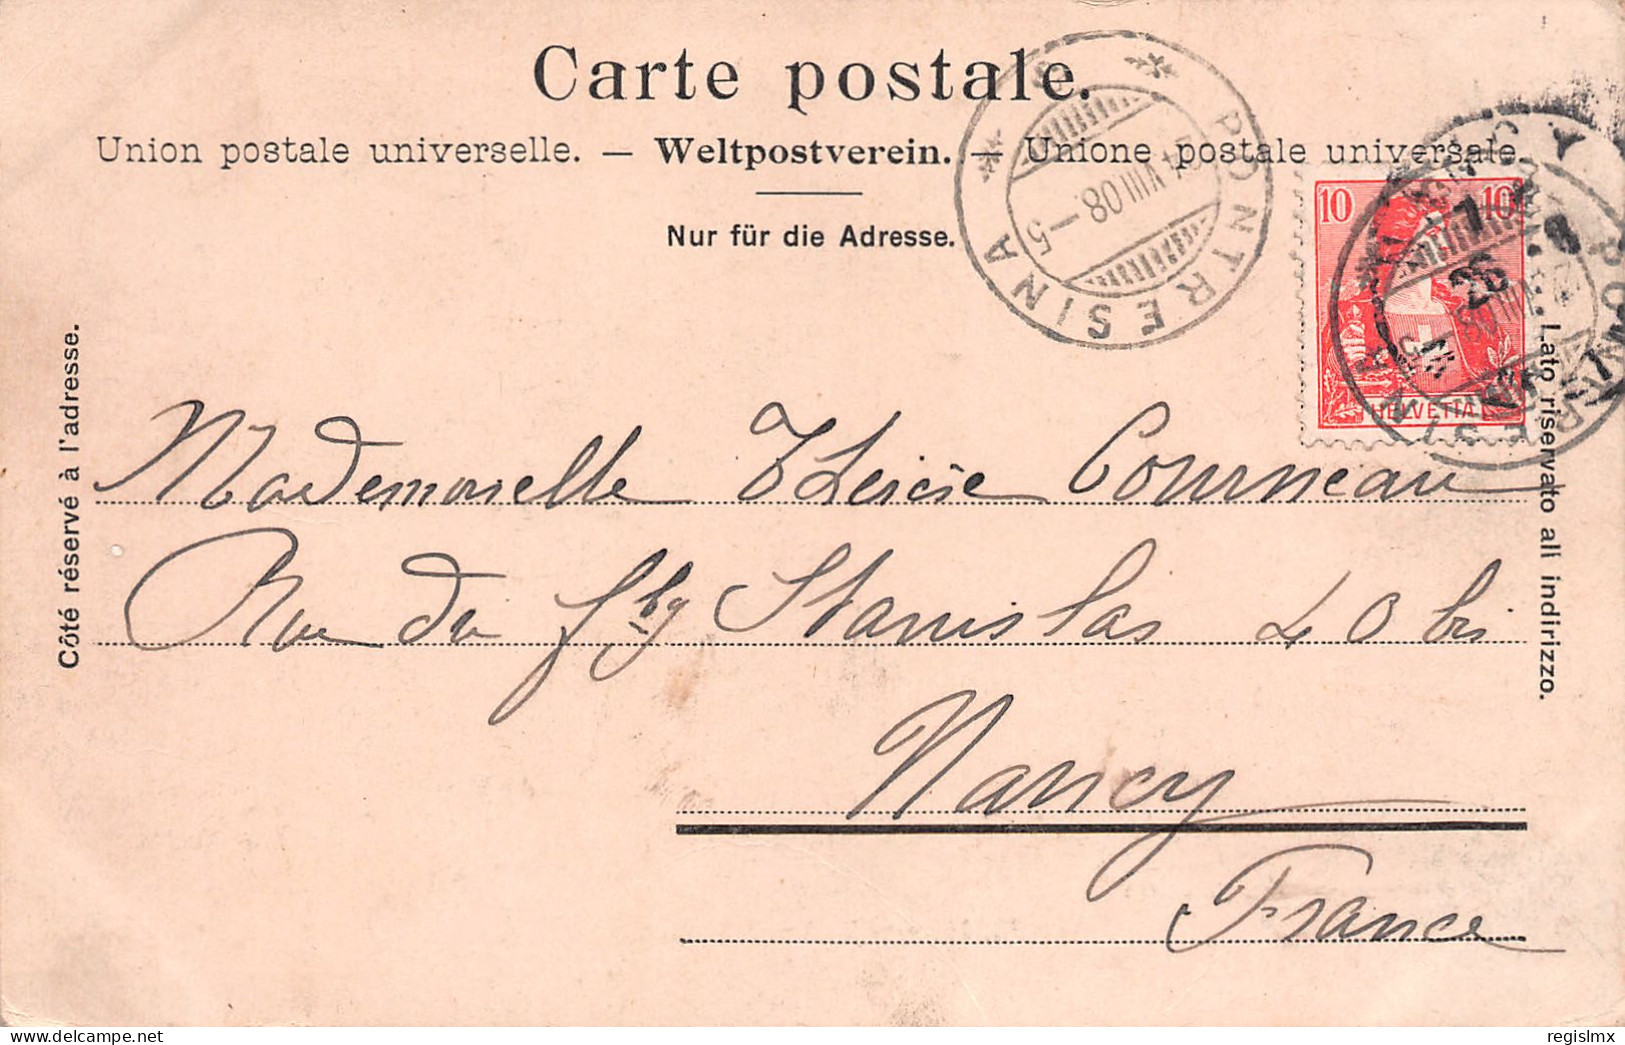 Carte postale.
Union postale universelle. — Weltpostverein. — Unione postale universale.
Nur für die Adresse.
Côté réservé à l'adresse.
Lato riservato ali indirizzo.
PONTRESINA
VIII 08.—5
10 10
HELVETIA
26
Mademoiselle Courneau
Rue du fbg Stanislas 40 bis
Nancy
France
delcampe.net
regislmx